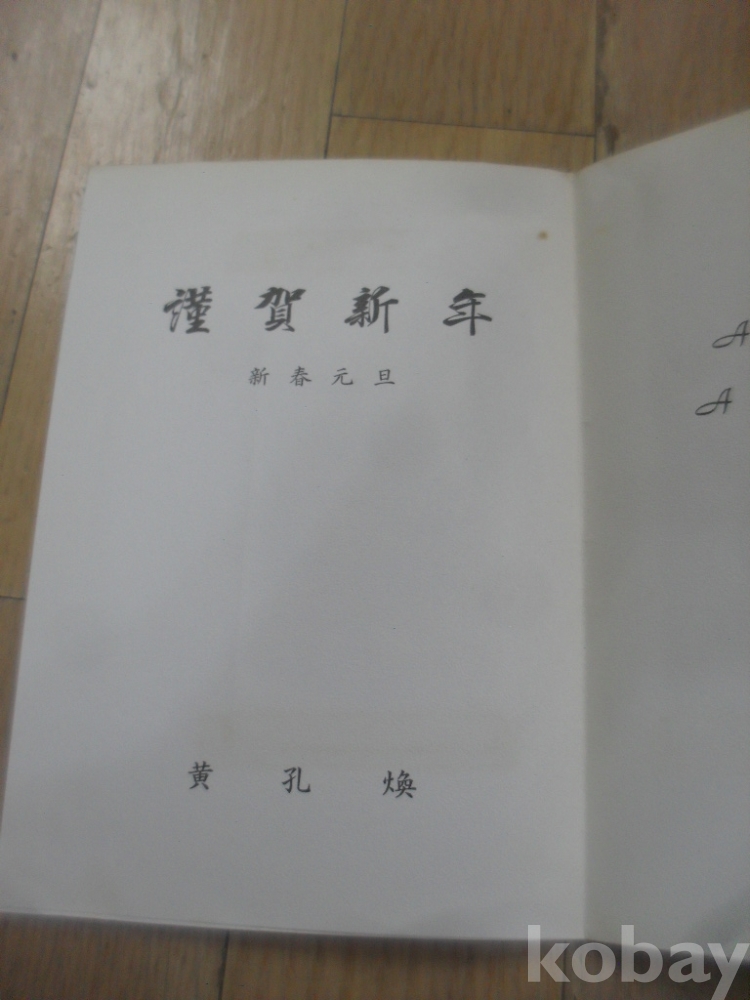 謹賀新年
新春元旦
黄孔煥
A
A
kobay